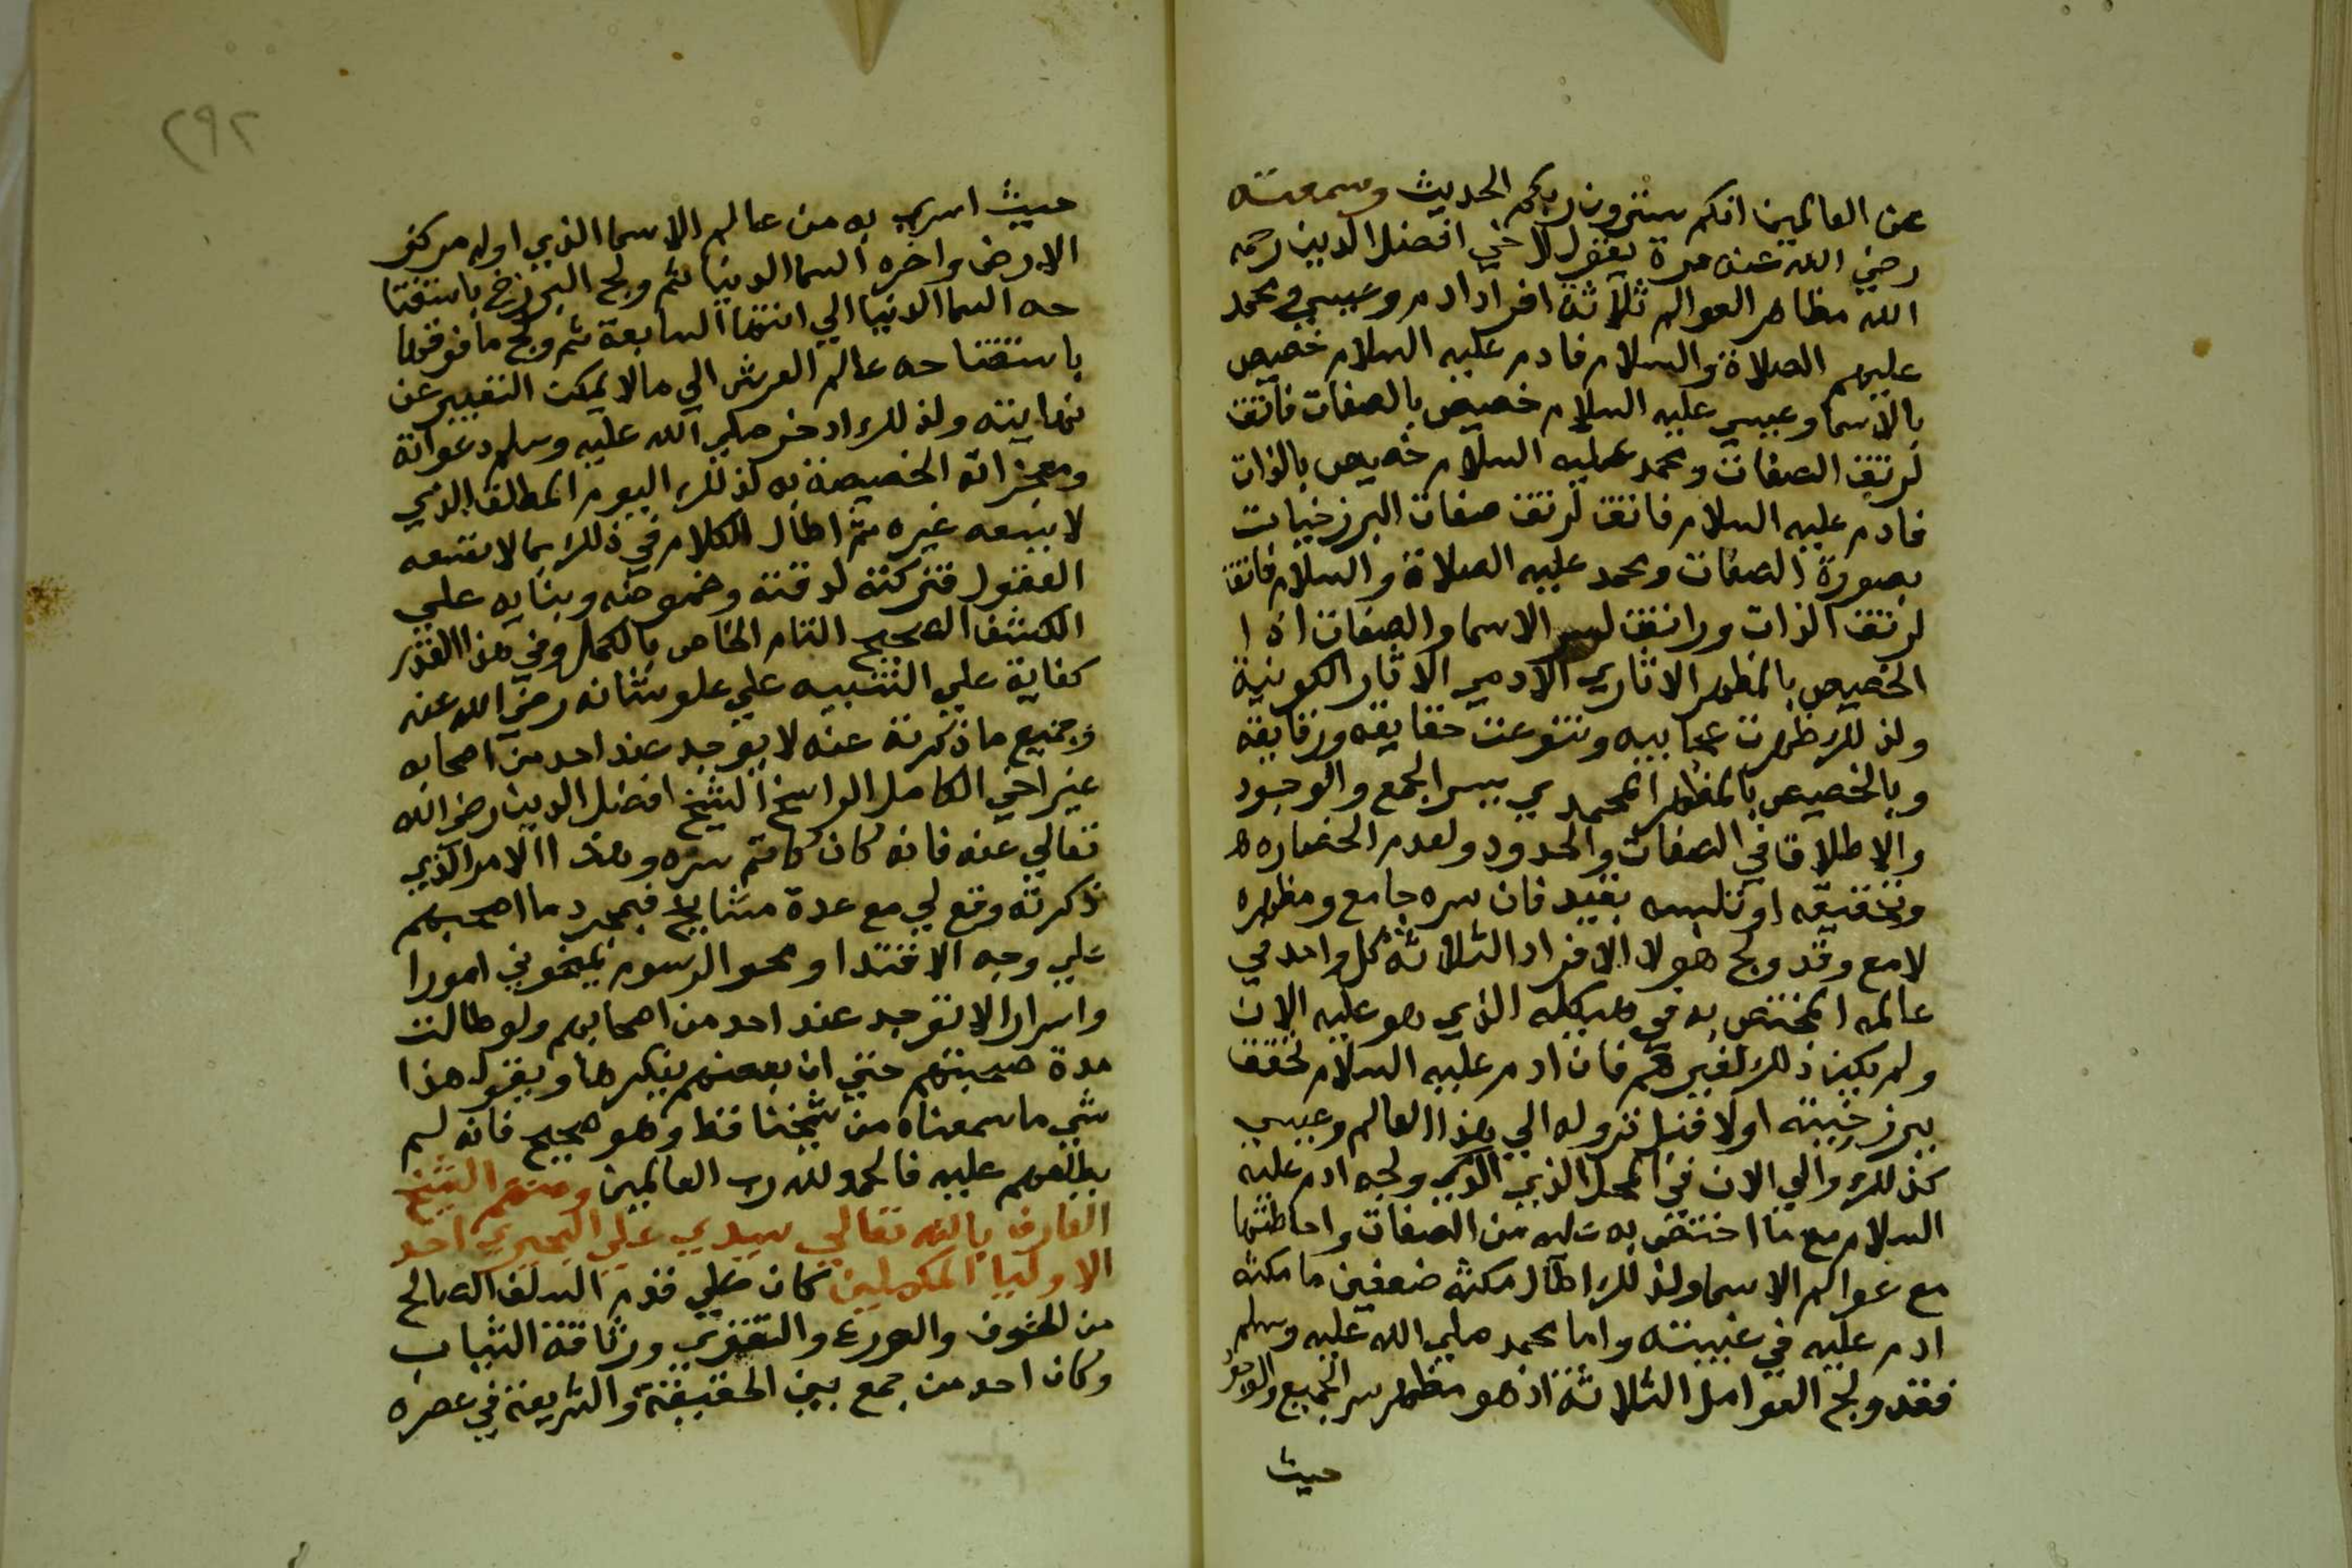 عن العالمين انكم سترون ربكم الحديث وسمعته
رضي الله عنه مرة يقول لاخي افضل الدين رحمه
الله مظاهر العوالم ثلاثة افراد ادم وعيسي ومحمد
عليهم الصلاة والسلام فادم عليه السلام خصيص
بالاسما وعيسي عليه السلام خصيص بالصفات فاتق
لرتق الصفات ومحمد عليه السلام خصيص بالذات
فادم عليه السلام فاتق لرتق صفات البرزخيات
بصورة الصفات ومحمد عليه الصلاة والسلام فاتق
لرتق الذات وراتق لسر الاسما والصفات اذ ا
الخصيص بالمظهر الاثاري الادمي الاثار الكونية
ولذلك ظهرت عجايبه وتنوعت حقايقه ورقايقه
وبالخصيص بالمظهر المحمدي بسر الجمع والوجود
والاطلاق في الصفات والحدود ولعدم انحصاره
وتحقيقه او تلبسه بقيد فان سره جامع ومظهره
لامع وقد ولج هولا الافراد الثلاثة كل واحد في
عالمه المختص به في هيكله الذي هو عليه الان
ولم يكن ذلك لغيرهم فان ادم عليه السلام تحقق
ببرزخيته اولا قبل نزوله الي هذا العالم وعيسي
كذلك والي الان في المحل الذي الذي ولجه ادم عليه
السلام مع ما اختص به عليه من الصفات واحاطتها
مع عوالم الاسما ولذلك اطال مكثه ضعفين ما مكثه
ادم عليه في غيبته واما محمد صلي الله عليه وسلم
فقد ولج العوامل الثلاثة اذ هو مظهر سر الجميع والوجود
حيث
٢٩٢
حيث اسري به من عالم الاسما الذي اوله مركز
الارض واخره السما الدنيا ثم ولج البرزخ باستفتا
حه السما الدنيا الي انتها السابعة ثم ولج ما فوقها
باستفتاحه عالم العرش الي ما لا يمكن التعبير عن
نهايته ولذلك ادخر صلي الله عليه وسلم دعواته
ومعجزاته الخصيصة به لذلك اليوم المطلق الذي
لا يسعه غيره ثم اطال الكلام في ذلك بما لا تسعه
العقول فتركته لدقته وغموضه وبنايه علي
الكشف الصحيح التام الخاص بالكمل وفي هذا القدر
كفاية علي التنبيه علي علو شانه رضي الله عنه
وجميع ما ذكرته عنه لا يوجد عند احد من اصحابه
غير اخي الكامل الراسخ الشيخ افضل الدين رضي الله
تعالي عنه فانه كان كاتم سره وهذا الامر الذي
ذكرته وقع لي مع عدة مشايخ فبمجرد ما اصحبهم
علي وجه الاقتدا ومحو الرسوم يمنحوني امورا
واسرارا لا توجد عند احد من اصحابهم ولو طالت
مدة صحبتهم حتي ان بعضهم ينكرها ويقول هذا
شي ما سمعناه من شيخنا قط وهو صحيح فانه لم
يطلعهم عليه فالحمد لله رب العالمين ومنهم الشيخ
العارف بالله تعالي سيدي علي البحيري احد
الاوليا المكملين كان علي قدم السلف الصالح
من الخوف والورع والتقوي ورثاقة الثياب
وكان احد من جمع بين الحقيقة والشريعة في عصره